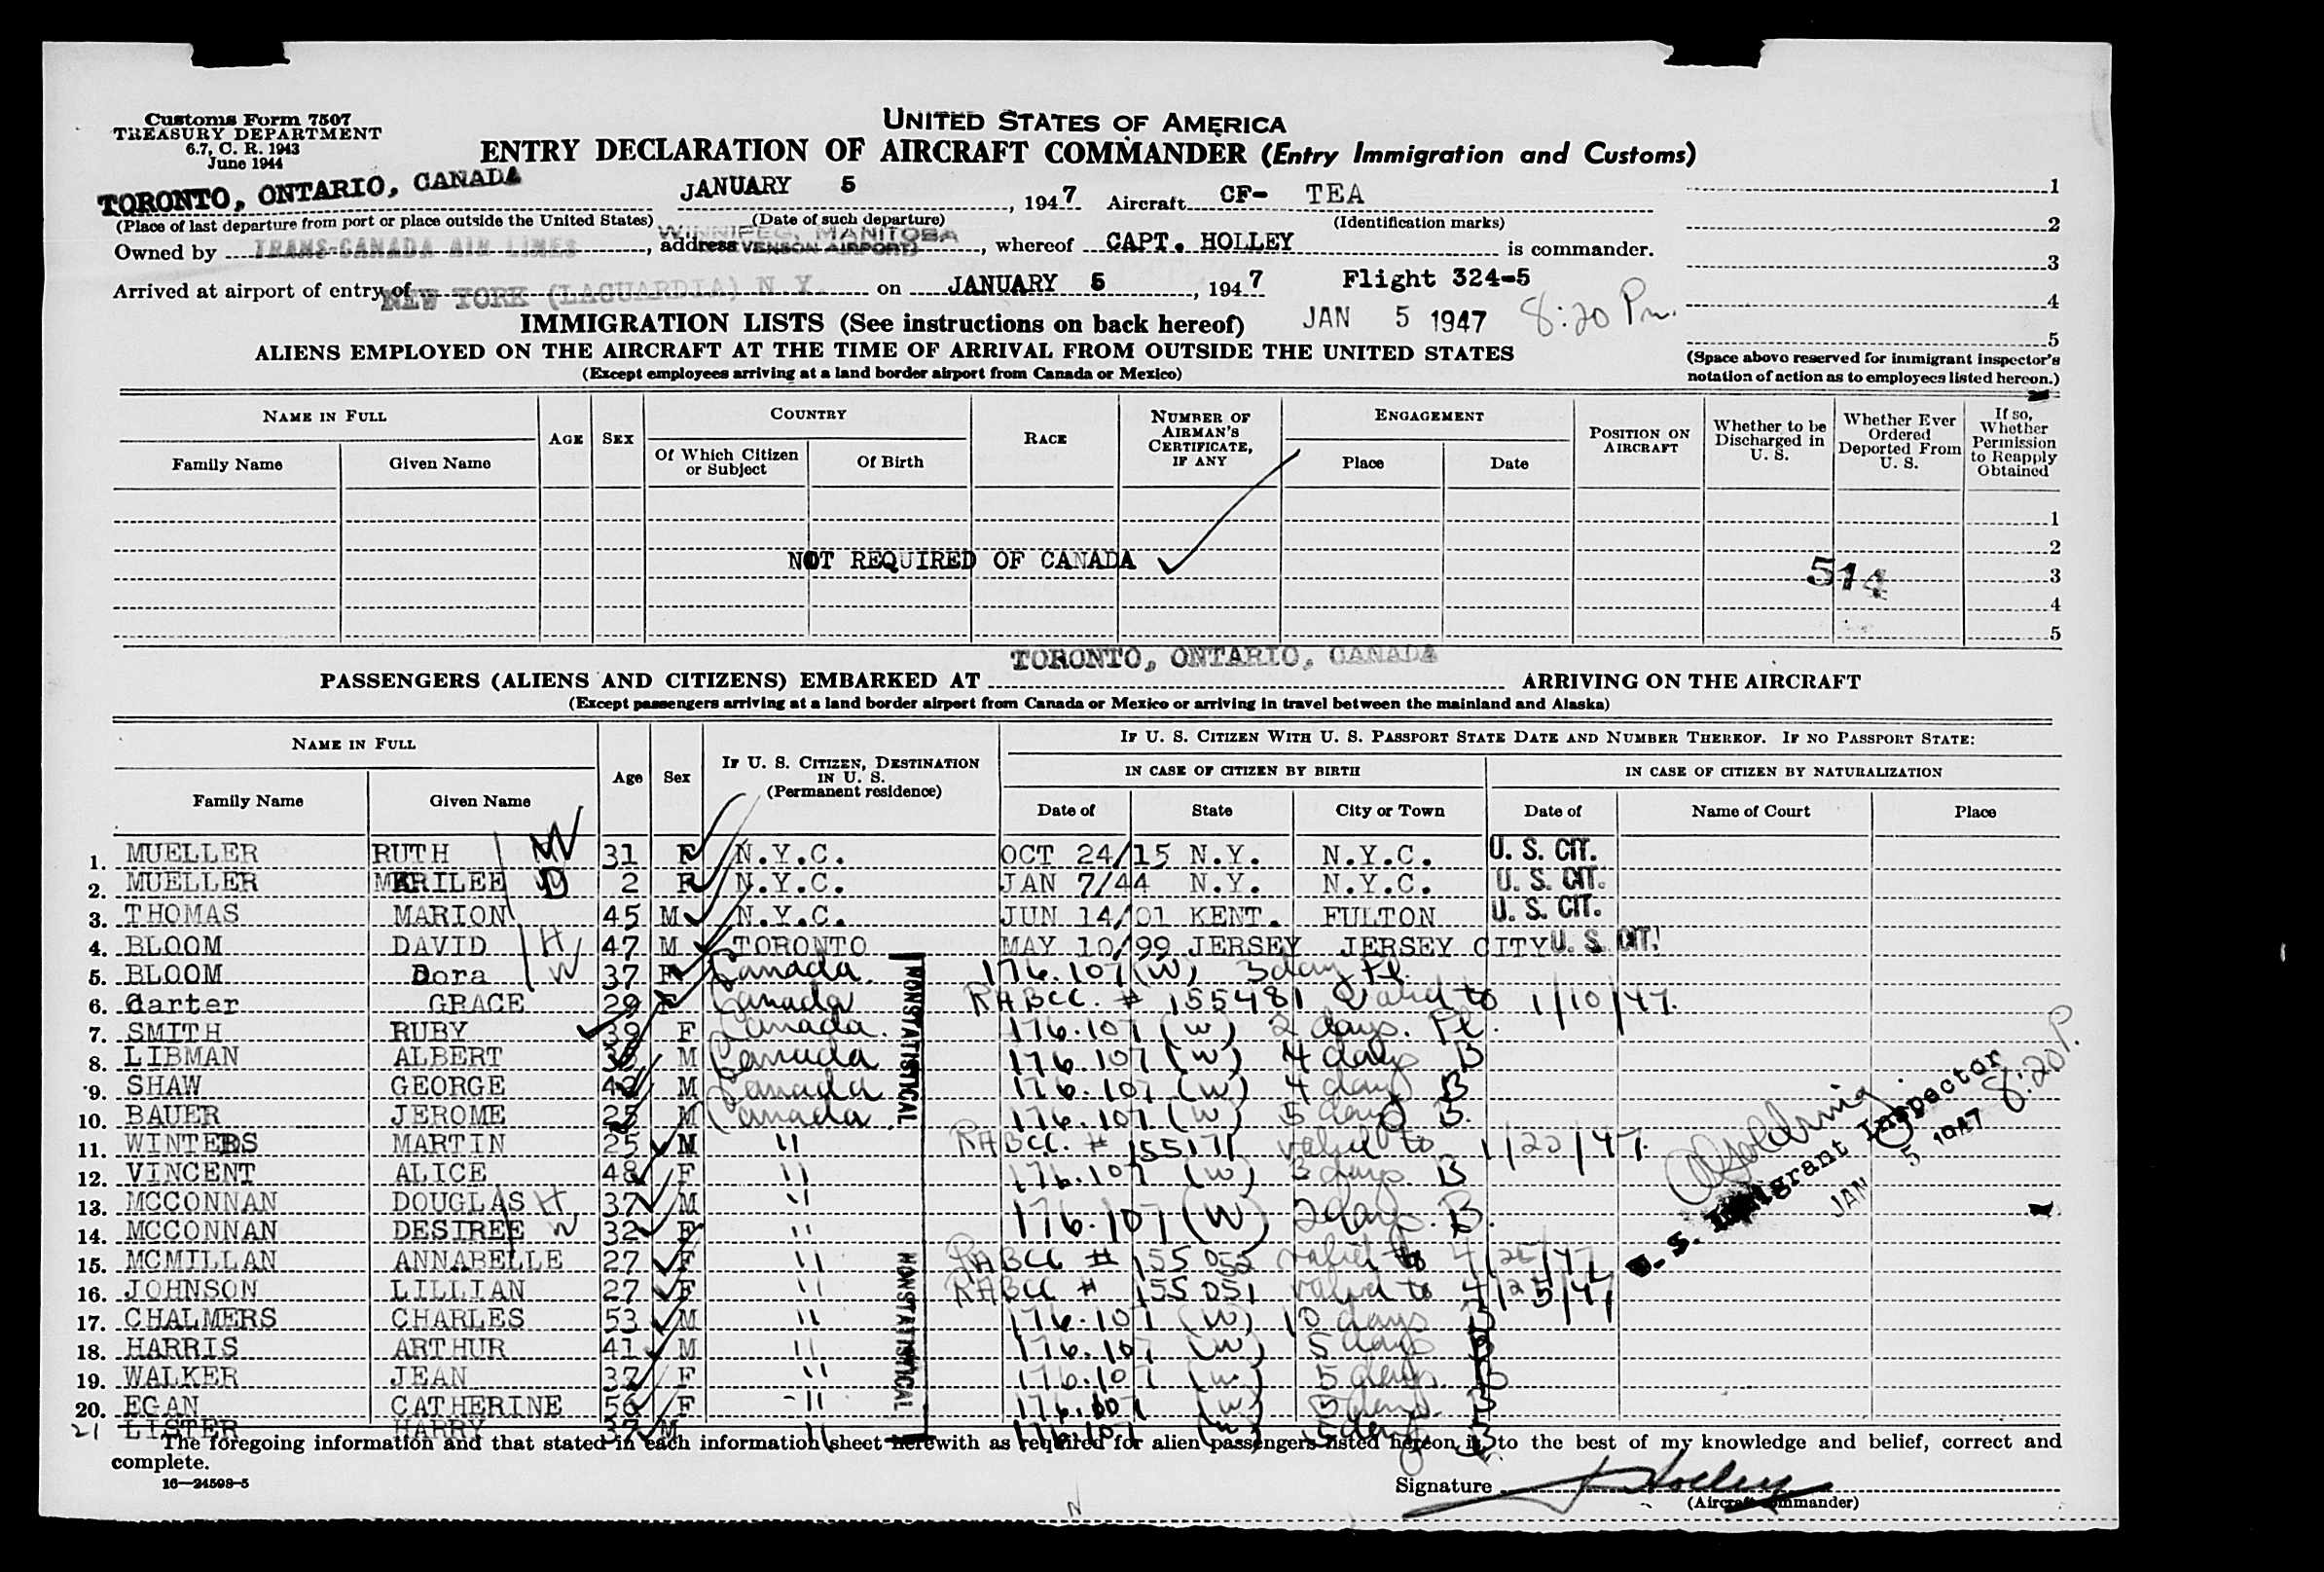 Customs Form 7507
TREASURY DEPARTMENT
6.7, C. R. 1943
June 1944
UNITED STATES OF AMERICA
ENTRY DECLARATION OF AIRCRAFT COMMANDER (Entry Immigration and Customs)
TORONTO, ONTARIO, CANADA JANUARY 5, 1947 Aircraft CF- TEA
(Place of last departure from port or place outside the United States) (Date of such departure) (Identification marks)
Owned by TRANS-CANADA AIR LINES, address WINNIPEG, MANITOBA VENSON AIRPORT), whereof CAPT. HOLLEY is commander.
Arrived at airport of entry of NEW YORK (LAGUARDIA) N Y. on JANUARY 5, 1947 Flight 324-5
1
2
3
4
5
(Space above reserved for immigrant inspector's notation of action as to employees listed hereon.)
IMMIGRATION LISTS (See instructions on back hereof) JAN 5 1947 8:20 Pm.
ALIENS EMPLOYED ON THE AIRCRAFT AT THE TIME OF ARRIVAL FROM OUTSIDE THE UNITED STATES
(Except employees arriving at a land border airport from Canada or Mexico)
NAME IN FULL AGE SEX COUNTRY RACE NUMBER OF AIRMAN'S CERTIFICATE, IF ANY ENGAGEMENT POSITION ON AIRCRAFT Whether to be Discharged in U. S. Whether Ever Ordered Deported From U. S. If so, Whether Permission to Reapply Obtained
Family Name Given Name Of Which Citizen or Subject Of Birth Place Date
1
2
NOT REQUIRED OF CANADA
514 3
4
5
TORONTO, ONTARIO, CANADA
PASSENGERS (ALIENS AND CITIZENS) EMBARKED AT ARRIVING ON THE AIRCRAFT
(Except passengers arriving at a land border airport from Canada or Mexico or arriving in travel between the mainland and Alaska)
NAME IN FULL Age Sex IF U. S. CITIZEN, DESTINATION IN U. S. (Permanent residence) IF U. S. CITIZEN WITH U. S. PASSPORT STATE DATE AND NUMBER THEREOF. IF NO PASSPORT STATE:
IN CASE OF CITIZEN BY BIRTH IN CASE OF CITIZEN BY NATURALIZATION
Family Name Given Name Date of State City or Town Date of Name of Court Place
1. MUELLER RUTH W 31 F N.Y.C. OCT 24/15 N.Y. N.Y.C. U. S. CIT.
2. MUELLER MERILEE D 2 F N.Y.C. JAN 7/44 N.Y. N.Y.C. U. S. CIT.
3. THOMAS MARION 45 M N.Y.C. JUN 14/01 KENT. FULTON U. S. CIT.
4. BLOOM DAVID H 47 M TORONTO MAY 10/99 JERSEY JERSEY CITY U. S. CIT.
5. BLOOM Dora W 37 F Canada 176.107 (W) 3 day Pl.
6. Carter GRACE 29 F Canada RABCC. # 155481 Valid to 1/10/47.
7. SMITH RUBY 39 F Canada. 176.107 (W) 2 days. Pl.
8. LIBMAN ALBERT M Canada 176.107 (W) 4 days B
9. SHAW GEORGE M Canada 176.107 (W) 4 days B
10. BAUER JEROME 25 M Canada 176.107 (W) 5 days B.
11. WINTERS MARTIN 25 M " RABCC. # 155171 valid to 1/22/47.
12. VINCENT ALICE 48 F " 176.107 (W) 3 days B
13. MCCONNAN DOUGLAS H 37 M "
14. MCCONNAN DESIREE W 32 F " 176.107 (W) 2 days. B.
15. MCMILLAN ANNABELLE 27 F " RABCC # 155052 valid to 4/25/47
16. JOHNSON LILLIAN 27 F " RABCC # 155051 valid to 4/25/47
17. CHALMERS CHARLES 53 M " 176.107 (W) 10 days B
18. HARRIS ARTHUR 41 M " 176.107 (W) 5 days B
19. WALKER JEAN 37 F " 176.107 (W) 5 days B
20. EGAN CATHERINE 56 F " 176.107 (W) days B
21 LISTER HARRY 37 M " 176.107 (W) 5 days B
NONSTATISTICAL
NONSTATISTICAL
U. S. Immigrant Inspector
JAN 5 1947 8:20 P.
The foregoing information and that stated in each information sheet herewith as required for alien passengers listed hereon is to the best of my knowledge and belief, correct and
complete.
16—24598-5
Signature Holley
(Aircraft Commander)